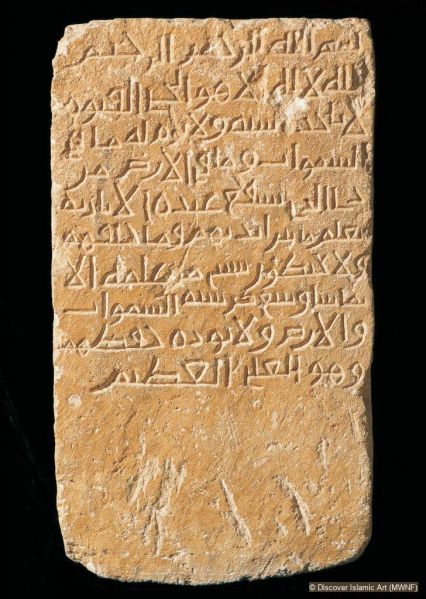 بسم الله الرحمن الرحيم
الله لا اله الا هو الحي القيوم
لا تاخذه سنه ولا نوم له ما في
السموات وما في الارض من
ذا الذي يشفع عنده الا باذنه
يعلم ما بين ايديهم وما خلفهم
ولا يحيطون بشي من علمه الا
بما شا وسع كرسيه السموات
والارض ولا يوده حفظهما
وهو العلي العظيم
© Discover Islamic Art (MWNF)